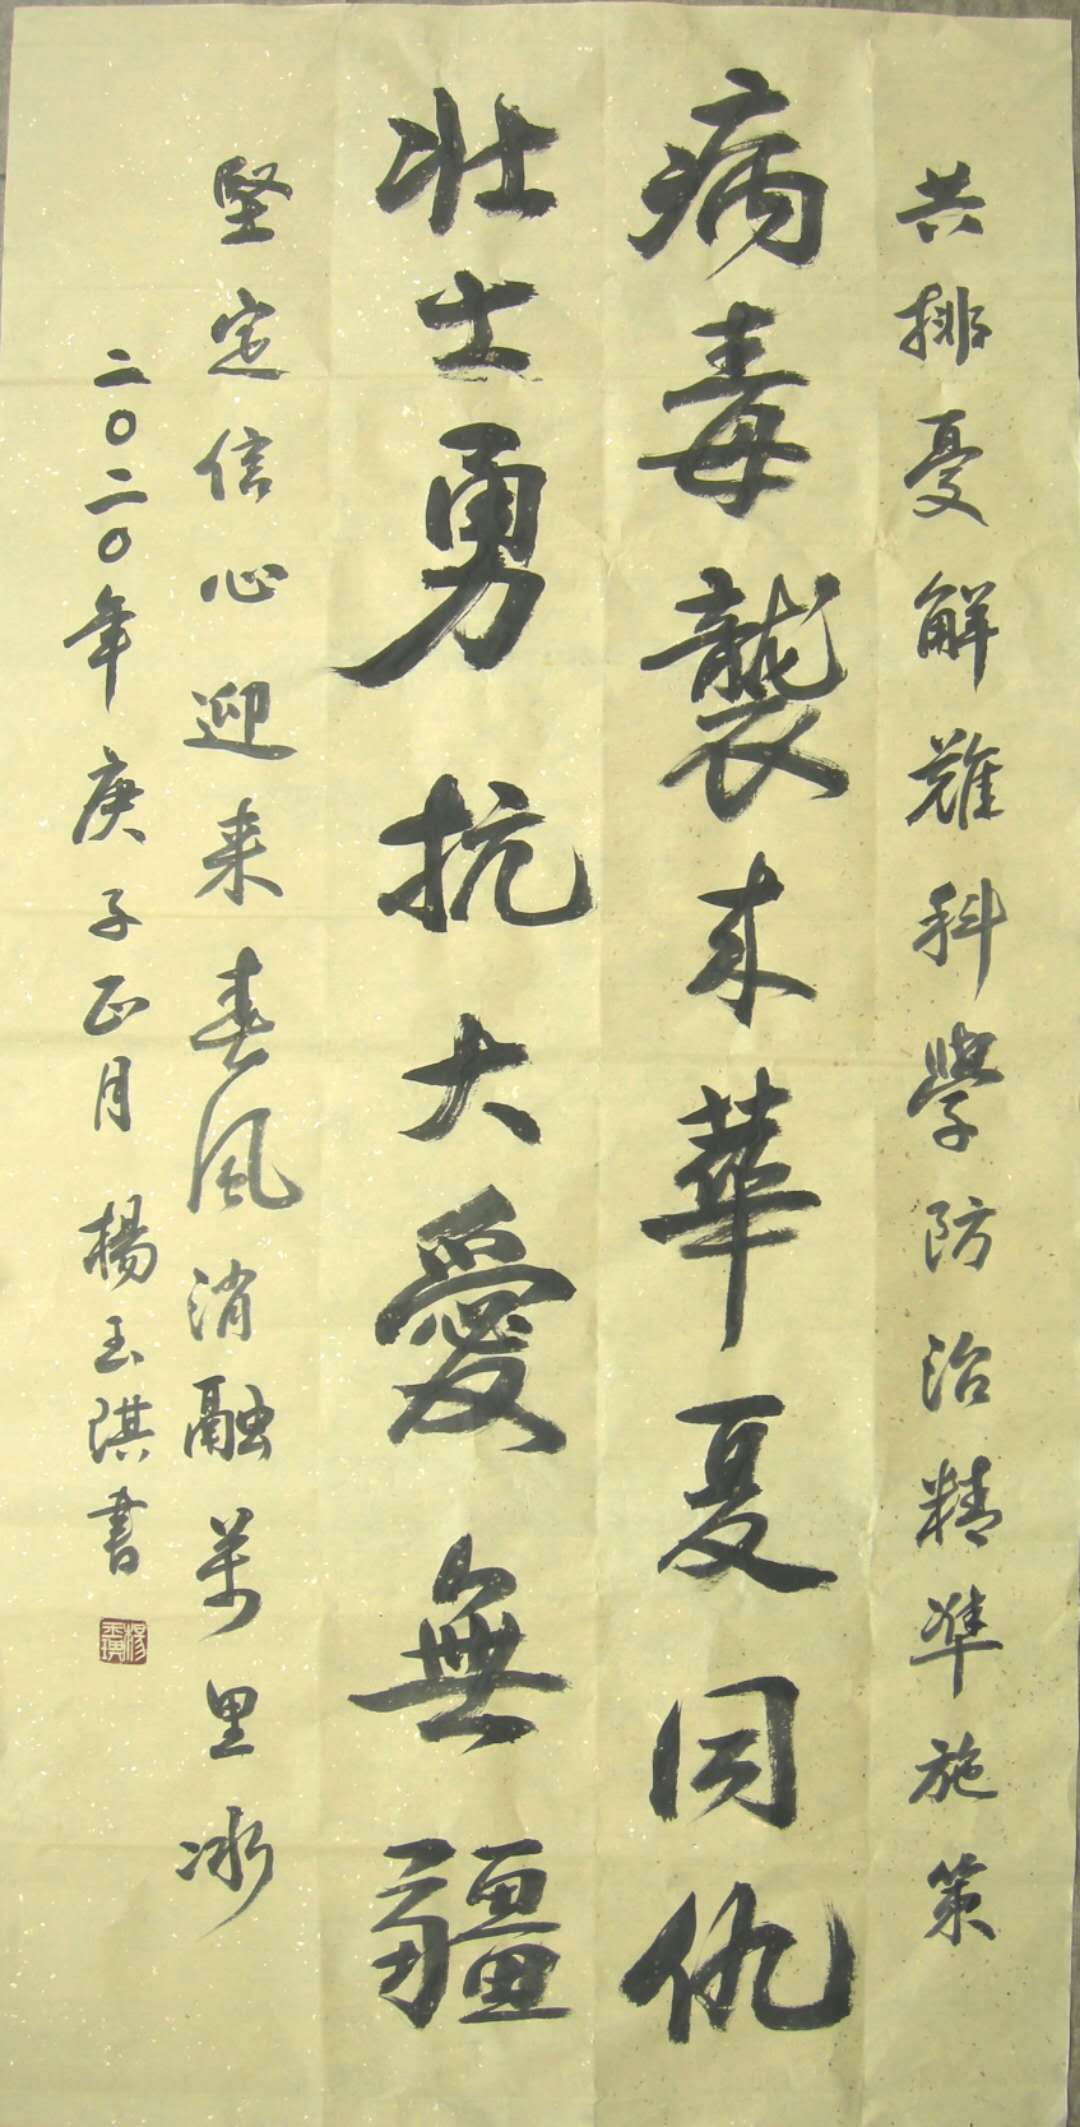 共排憂解難科學防治精準施策
病毒襲来華夏同仇
壮士勇抗大愛無疆
堅定信心迎来春風消融萬里冰
二〇二〇年庚子正月楊玉琪書